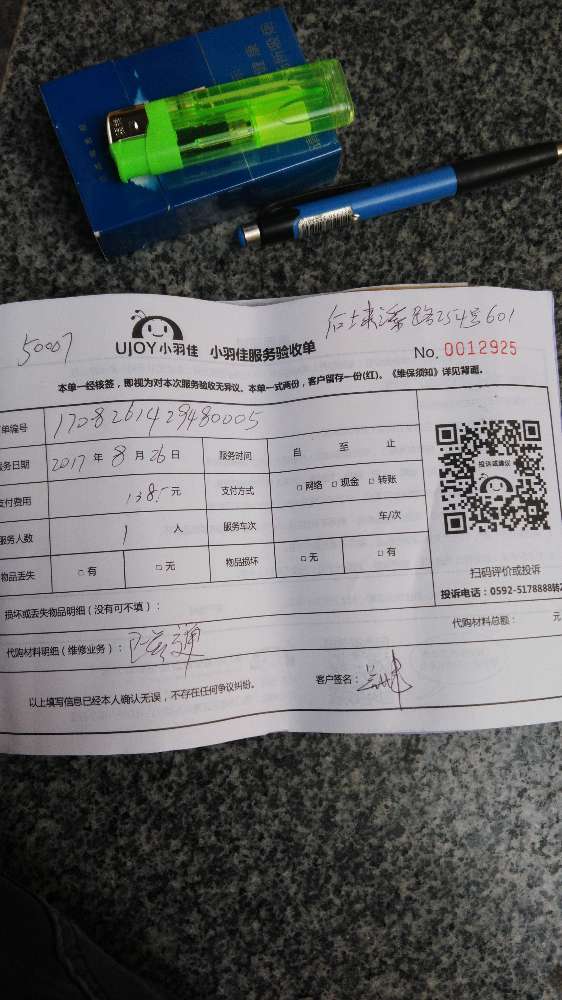 健康
50007
后埭溪路254号601
UJOY小羽佳 小羽佳服务验收单
No. 0012925
本单一经核签，即视为对本次服务验收无异议。本单一式两份，客户留存一份(红)。《维保须知》详见背面。
单编号 1708261429480005
服务日期 2017 年 8 月 26 日 服务时间 自 至 止
支付费用 138.5 元 支付方式 □ 网络 □ 现金 □ 转账
服务人数 1 人 服务车次 车/次
物品丢失 □ 有 □ 无 物品损坏 □ 无 □ 有
投诉或建议
扫码评价或投诉
投诉电话：0592-5178888转2
损坏或丢失物品明细（没有可不填）：
代购材料明细（维修业务）： 代购材料总额： 元
以上填写信息已经本人确认无误，不存在任何争议纠纷。 客户签名：